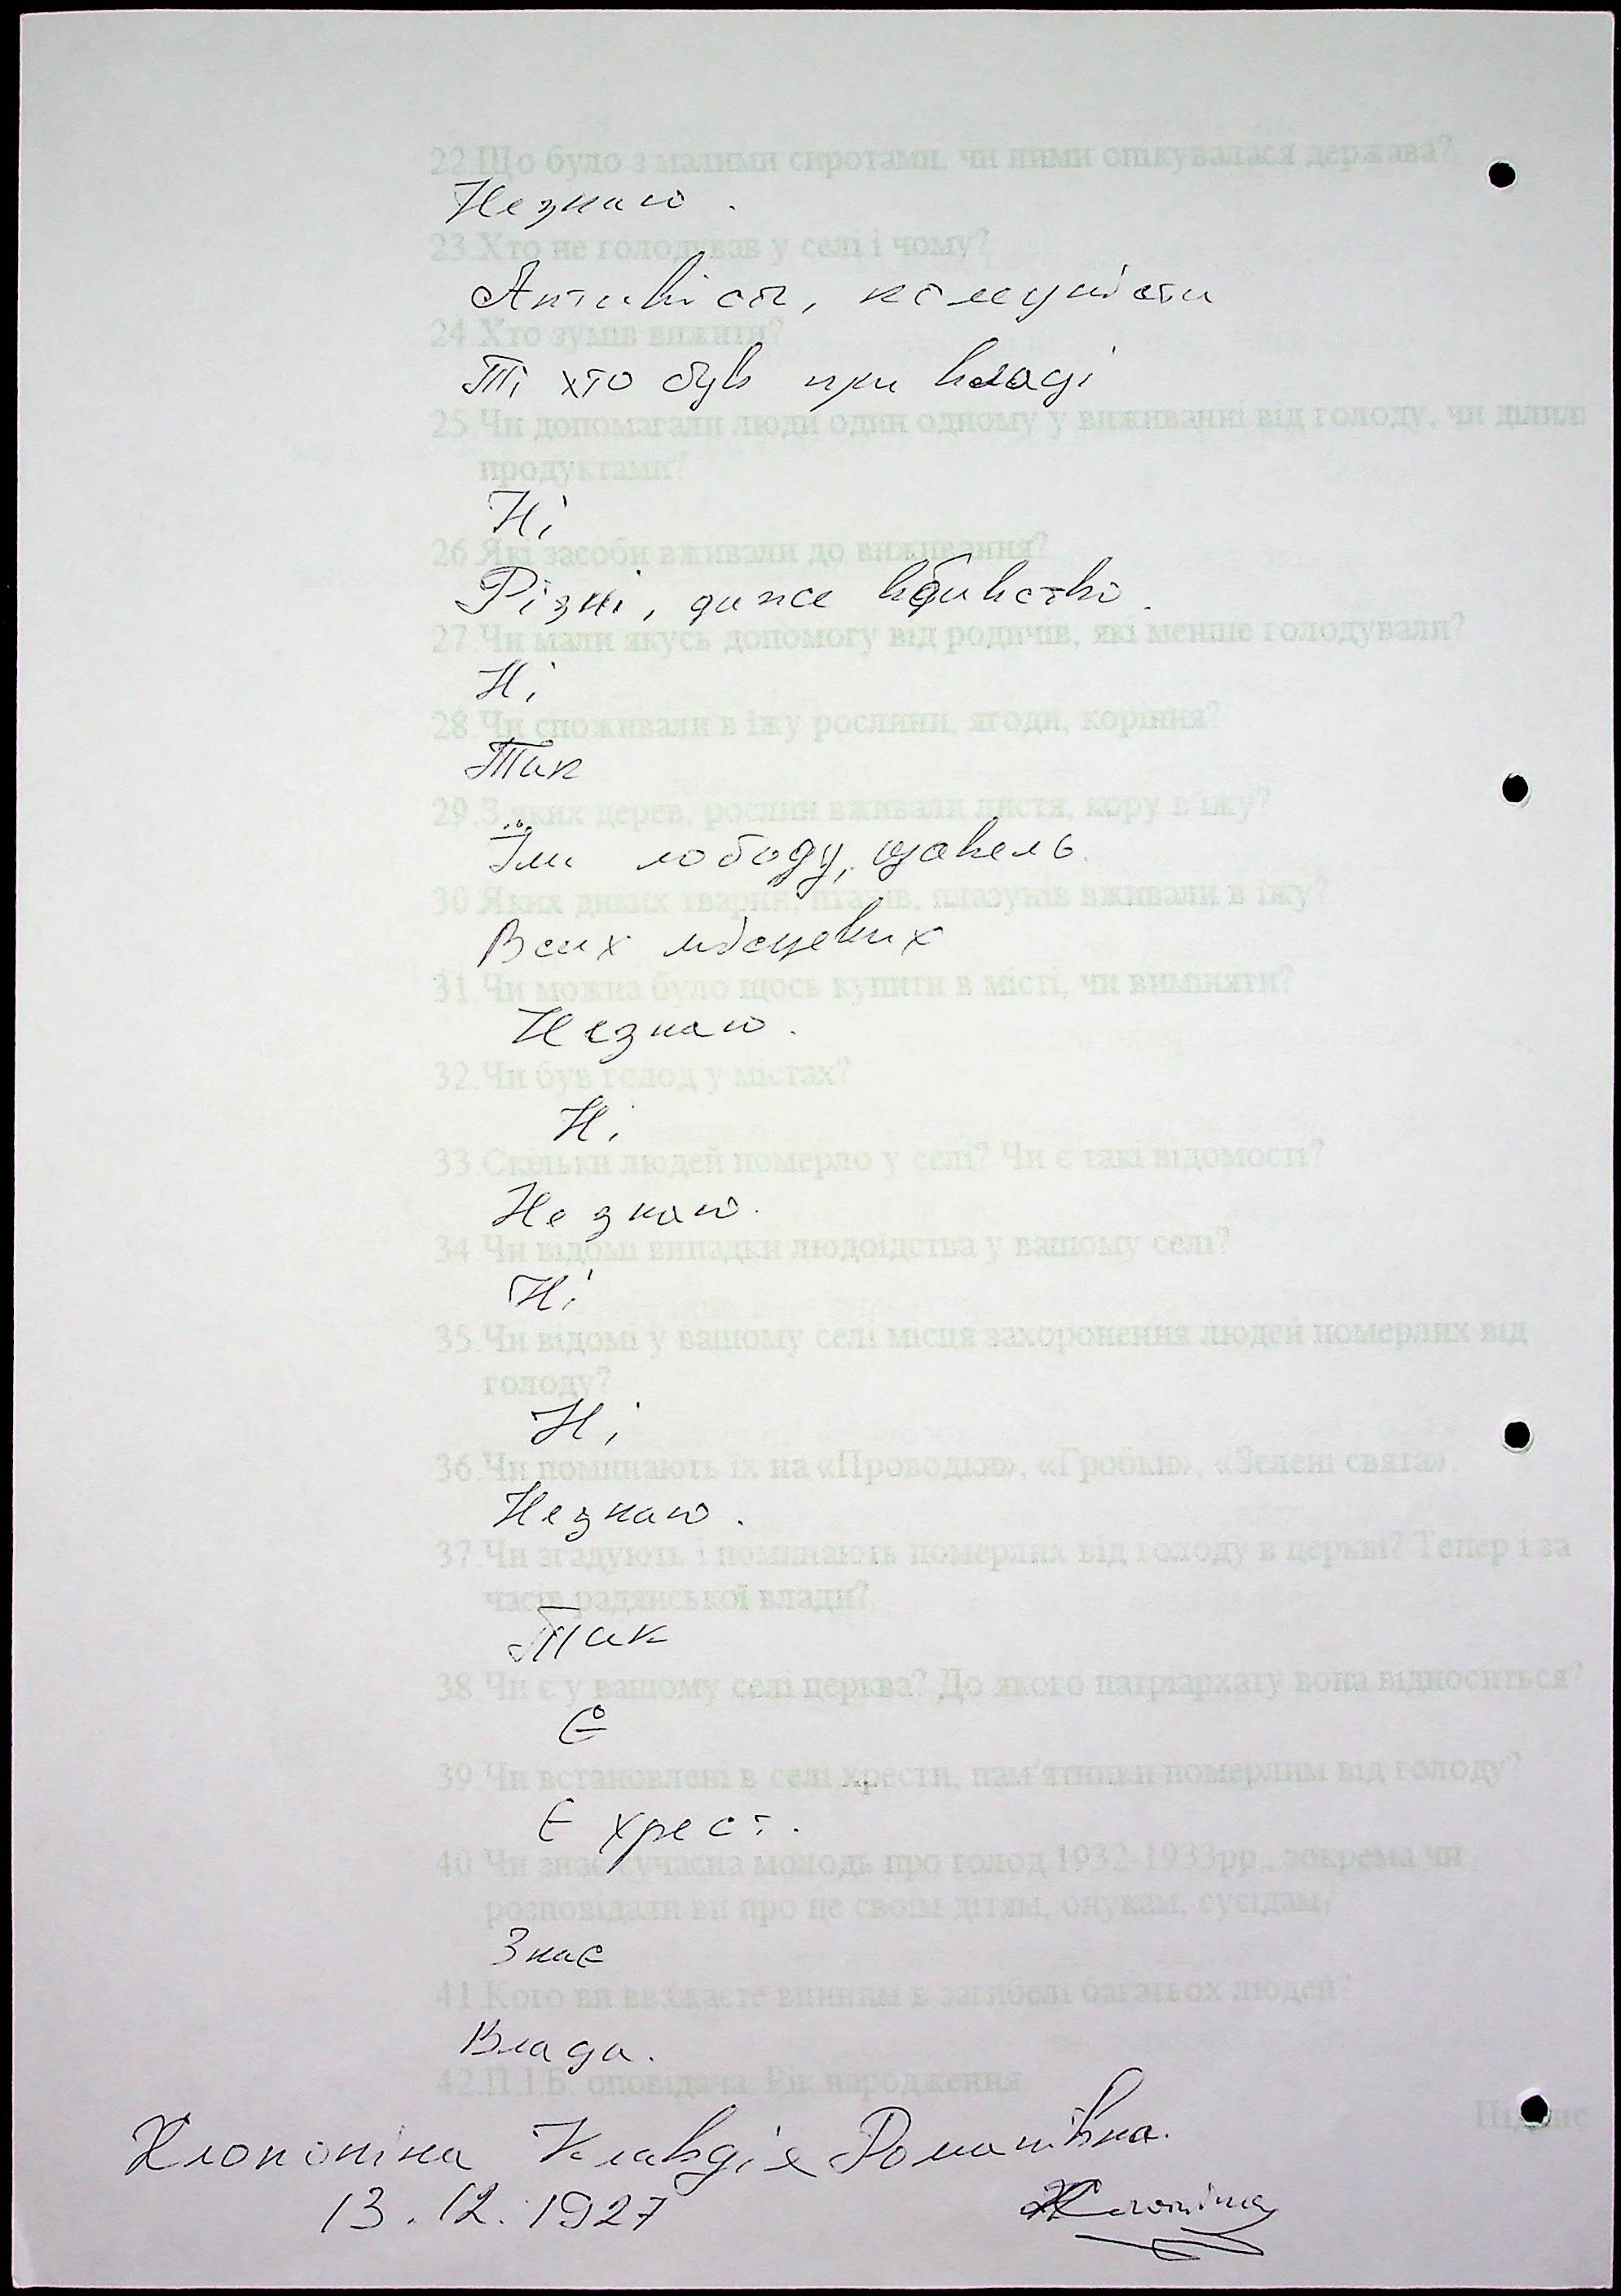 22.Що було з малими сиротами, чи ними опікувалася держава?
Незнаю.
23.Хто не голодував у селі і чому?
Активісти, комуністи
24.Хто зумів вижити?
Ті хто був при владі
25.Чи допомагали люди один одному у виживанні від голоду, чи ділили
продуктами?
Ні
26.Які засоби вживали до виживання?
Різні, даже вбивство.
27.Чи мали якусь допомогу від родичів, які менше голодували?
Ні
28.Чи споживали в їжу рослини, ягоди, коріння?
Так
29.З яких дерев, рослин вживали листя, кору в їжу?
Їли лободу, щавель.
30.Яких диких тварин, птахів, плазунів вживали в їжу?
Всих місцевих
31.Чи можна було щось купити в місті, чи виміняти?
Незнаю.
32.Чи був голод у містах?
Ні
33.Скільки людей померло у селі? Чи є такі відомості?
Не знаю.
34.Чи відомі випадки людоїдства у вашому селі?
Ні
35.Чи відомі у вашому селі місця захоронення людей померлих від
голоду?
Ні
36.Чи поминають їх на «Проводки», «Гробки», «Зелені свята».
Незнаю.
37.Чи згадують і поминають померлих від голоду в церкві? Тепер і за
часів радянської влади?
Так
38.Чи є у вашому селі церква? До якого патріархату вона відноситься?
Є
39.Чи встановлені в селі хрести, пам'ятники померлим від голоду?
Є хрест.
40.Чи знає сучасна молодь про голод 1932-1933рр., зокрема чи
розповідали ви про це своїм дітям, онукам, сусідам?
Знає
41.Кого ви вважаєте винним в загибелі багатьох людей?
Влада.
42.П.І.Б. оповідача. Рік народження.
Підпис
Клавдія Романівна.
13.12.1927